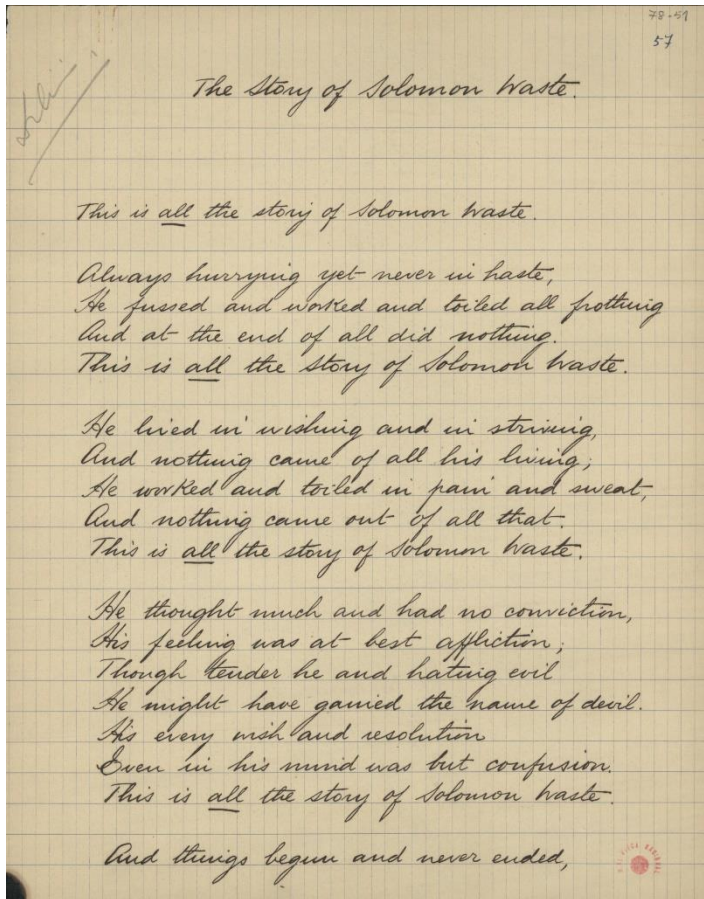 78-51
57
The Story of Solomon Waste.
This is all the story of Solomon Waste.
Always hurrying yet never in haste,
He fussed and worked and toiled all frothing
And at the end of all did nothing.
This is all the story of Solomon Waste.
He lived in wishing and in striving,
And nothing came of all his living;
He worked and toiled in pain and sweat,
And nothing came out of all that.
This is all the story of Solomon Waste.
He thought much and had no conviction,
His feeling was at best affliction;
Though tender he and hating evil
He might have gained the name of devil.
His every wish and resolution
Even in his mind was but confusion.
This is all the story of Solomon Waste.
And things begun and never ended,